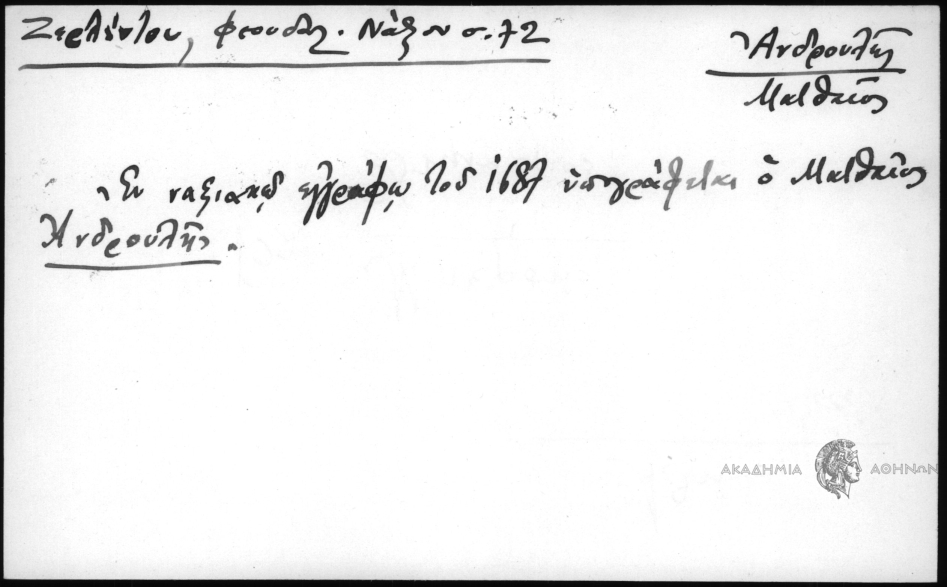 Ζερλέντου, Φεουδαλ. Νάξου σ. 72
Ἀνδρουλῆς
Ματθαῖος
Ἐν ναξιακῷ ἐγγράφῳ τοῦ 1687 ὑπογράφεται ὁ Ματθαῖος
Ἀνδρουλῆς.
ΑΚΑΔΗΜΙΑ ΑΘΗΝΩΝ